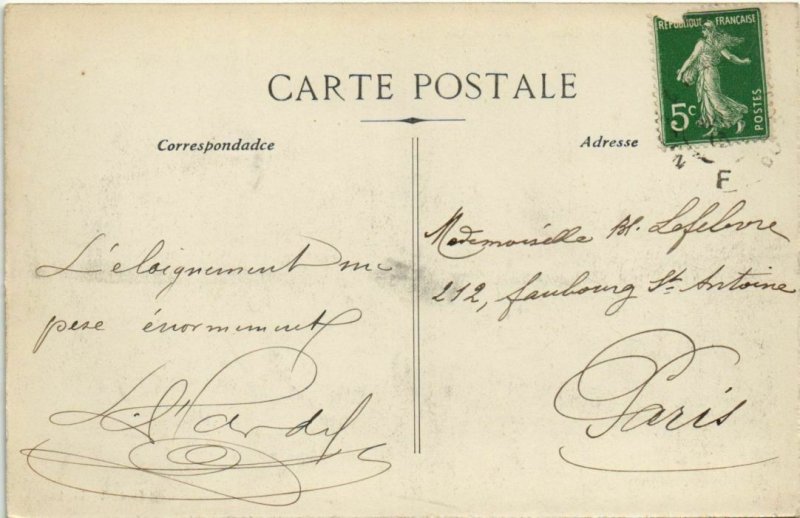 RÉPUBLIQUE FRANÇAISE
5c
POSTES
CARTE POSTALE
Correspondadce
L'éloignement me
pese énormement
Adresse
Mademoiselle Bl. Lefebvre
212, faubourg St Antoine
Paris
F